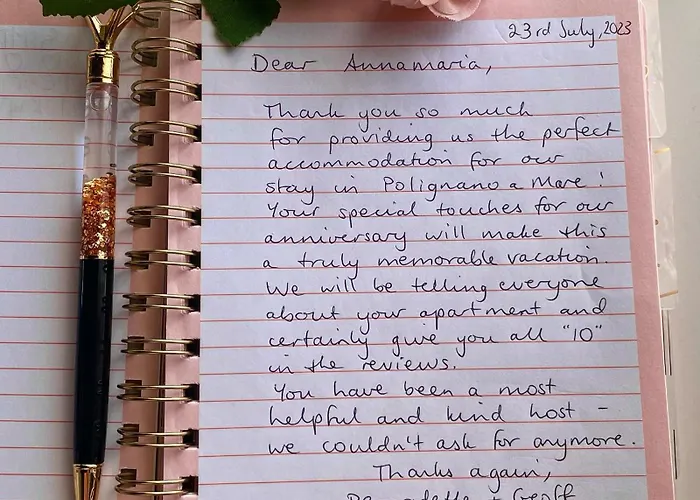 23rd July, 2023
Dear Annamaria,
Thank you so much
for providing us the perfect
accommodation for our
stay in Polignano a Mare!
Your special touches for our
anniversary will make this
a truly memorable vacation.
We will be telling everyone
about your apartment and
certainly give you all "10"
in the reviews.
You have been a most
helpful and kind host -
we couldn't ask for anymore.
Thanks again,
+ Geoff